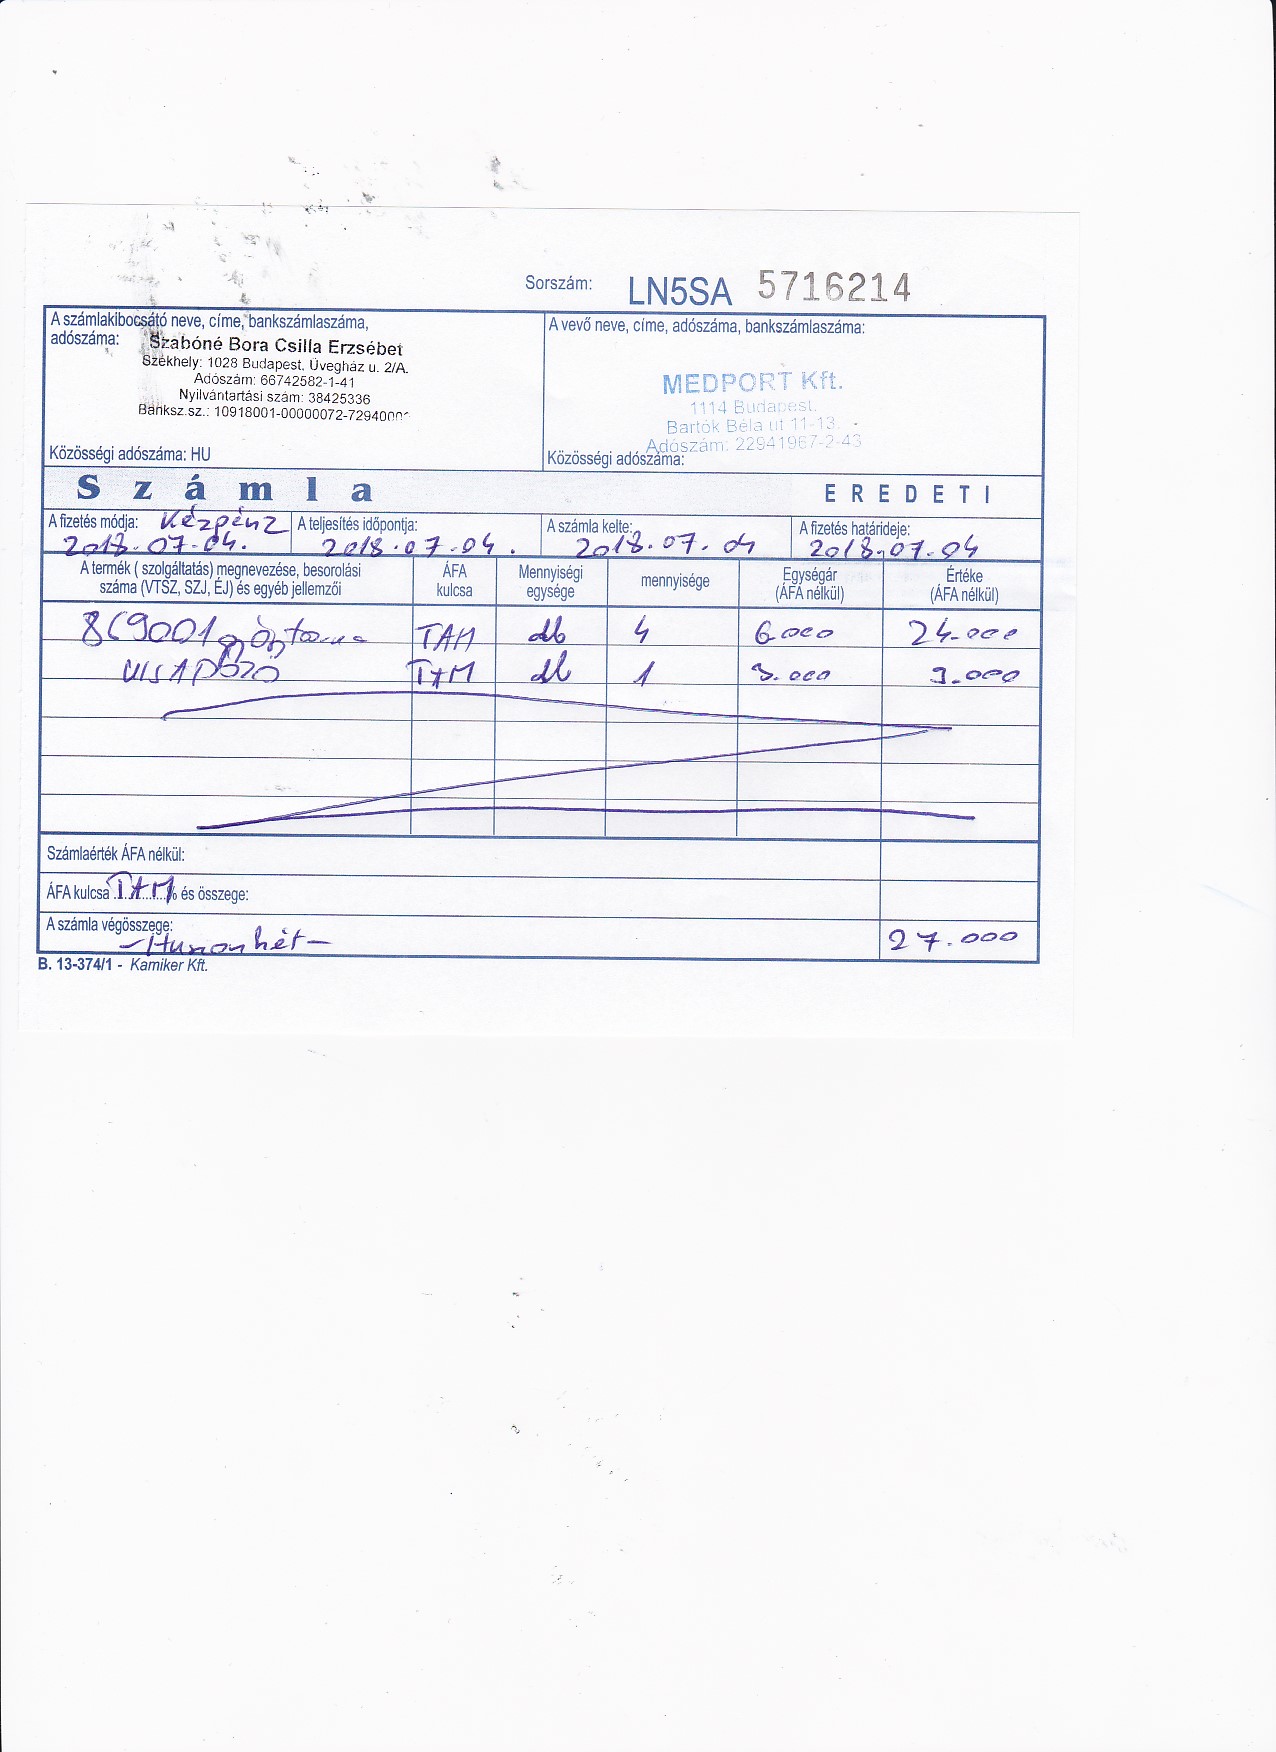 Sorszám: LN5SA 5716214
A számlakibocsátó neve, címe, bankszámlaszáma,
adószáma:
Szabóné Bora Csilla Erzsébet
Székhely: 1028 Budapest, Üvegház u. 2/A.
Adószám: 66742582-1-41
Nyilvántartási szám: 38425336
Banksz.sz.: 10918001-00000072-7294000
Közösségi adószáma: HU
A vevő neve, címe, adószáma, bankszámlaszáma:
MEDPORT Kft.
1114 Budapest,
Bartók Béla út 11-13.
Adószám: 22941967-2-43
Közösségi adószáma:
Számla EREDETI
A fizetés módja: Készpénz
2018-07-04.
A teljesítés időpontja:
2018.07-04.
A számla kelte:
2018.07.04
A fizetés határideje:
2018-07-04
A termék ( szolgáltatás) megnevezése, besorolási
száma (VTSZ, SZJ, ÉJ) és egyéb jellemzői
ÁFA
kulcsa
Mennyiségi
egysége
mennyisége
Egységár
(ÁFA nélkül)
Értéke
(ÁFA nélkül)
869001 TAM db 4 6000 24.000
TAM db 1 3.000 3.000
Számlaérték ÁFA nélkül:
ÁFA kulcsa TAM % és összege:
A számla végösszege:
27.000
B. 13-374/1 - Kamiker Kft.